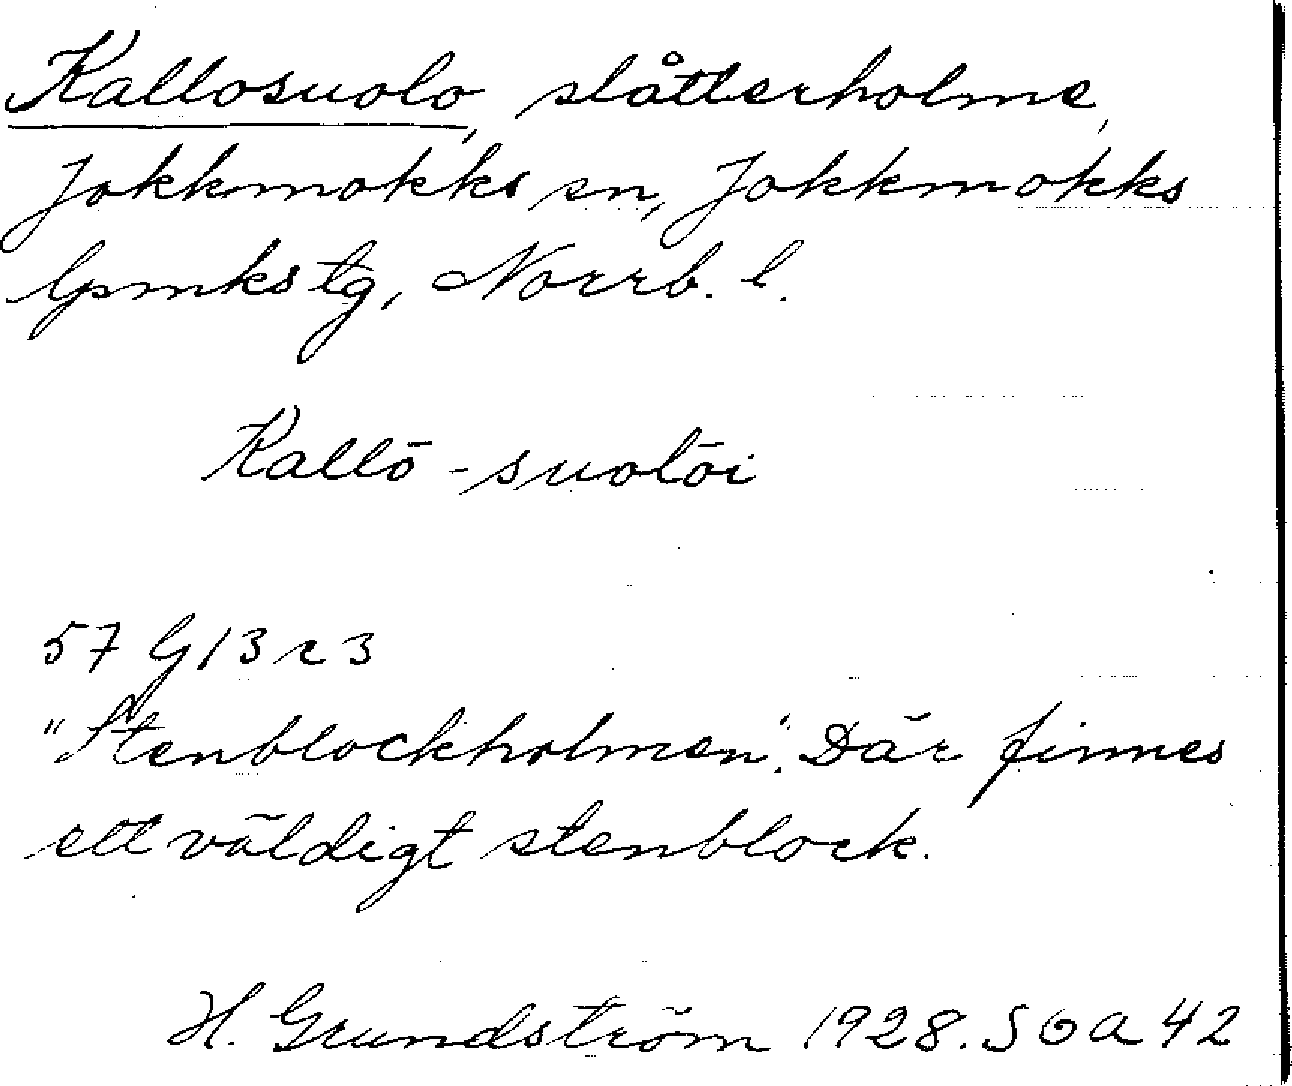 Kallosuolo, slåtterholme,
Jokkmokks sn, Jokkmokks
lpmks tg, Norrb. l.
Kallō - suolōi
57 G 13 r 3
"Stenblockholmen". Där finnes
ett väldigt stenblock.
H. Grundström 1928. SOA 42